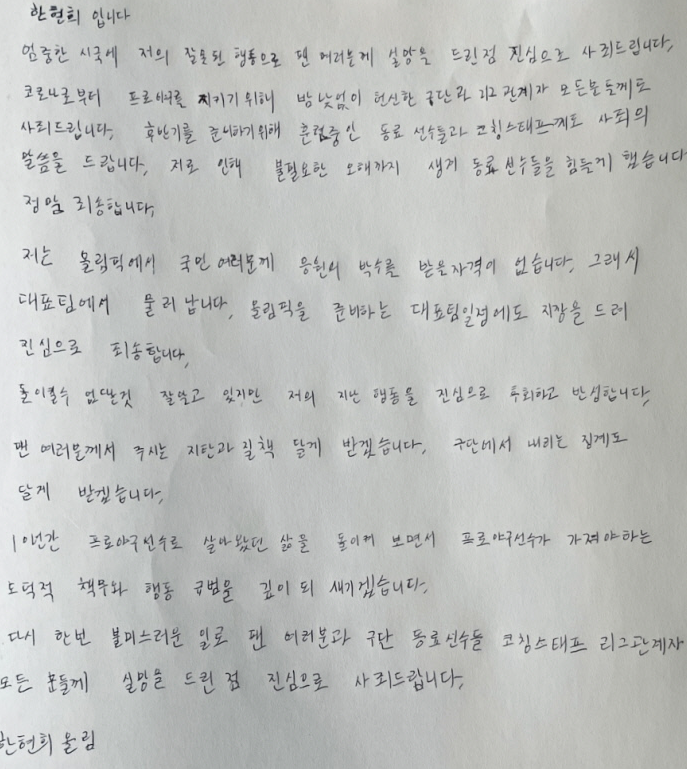 한현희 입니다
엄중한 시국에 저의 잘못된 행동으로 팬 여러분께 실망을 드린점 진심으로 사죄드립니다.
코로나로부터 프로야구를 지키기 위해 밤낮없이 헌신한 구단과 리그 관계자 모든분들께도
사죄드립니다. 후반기를 준비하기위해 훈련중인 동료 선수들과 코칭스태프께도 사죄의
말씀을 드립니다. 저로 인해 불필요한 오해까지 생겨 동료선수들을 힘들게 했습니다
정말 죄송합니다.
저는 올림픽에서 국민여러분께 응원의 박수를 받을자격이 없습니다. 그래서
대표팀에서 물러납니다. 올림픽을 준비하는 대표팀일정에도 지장을 드려
진심으로 죄송합니다.
돌이킬수 없단것 잘알고 있지만 저의 지난 행동을 진심으로 후회하고 반성합니다.
팬 여러분께서 주시는 지탄과 질책 달게 받겠습니다. 구단에서 내리는 징계도
달게 받겠습니다.
10년간 프로야구선수로 살아왔던 삶을 돌이켜 보면서 프로야구선수가 가져야하는
도덕적 책무와 행동 규범을 깊이 되 새기겠습니다.
다시 한번 불미스러운 일로 팬 여러분과 구단 동료선수들 코칭스태프 리그관계자
모든 분들께 실망을 드린 점 진심으로 사죄드립니다.
한현희 올림